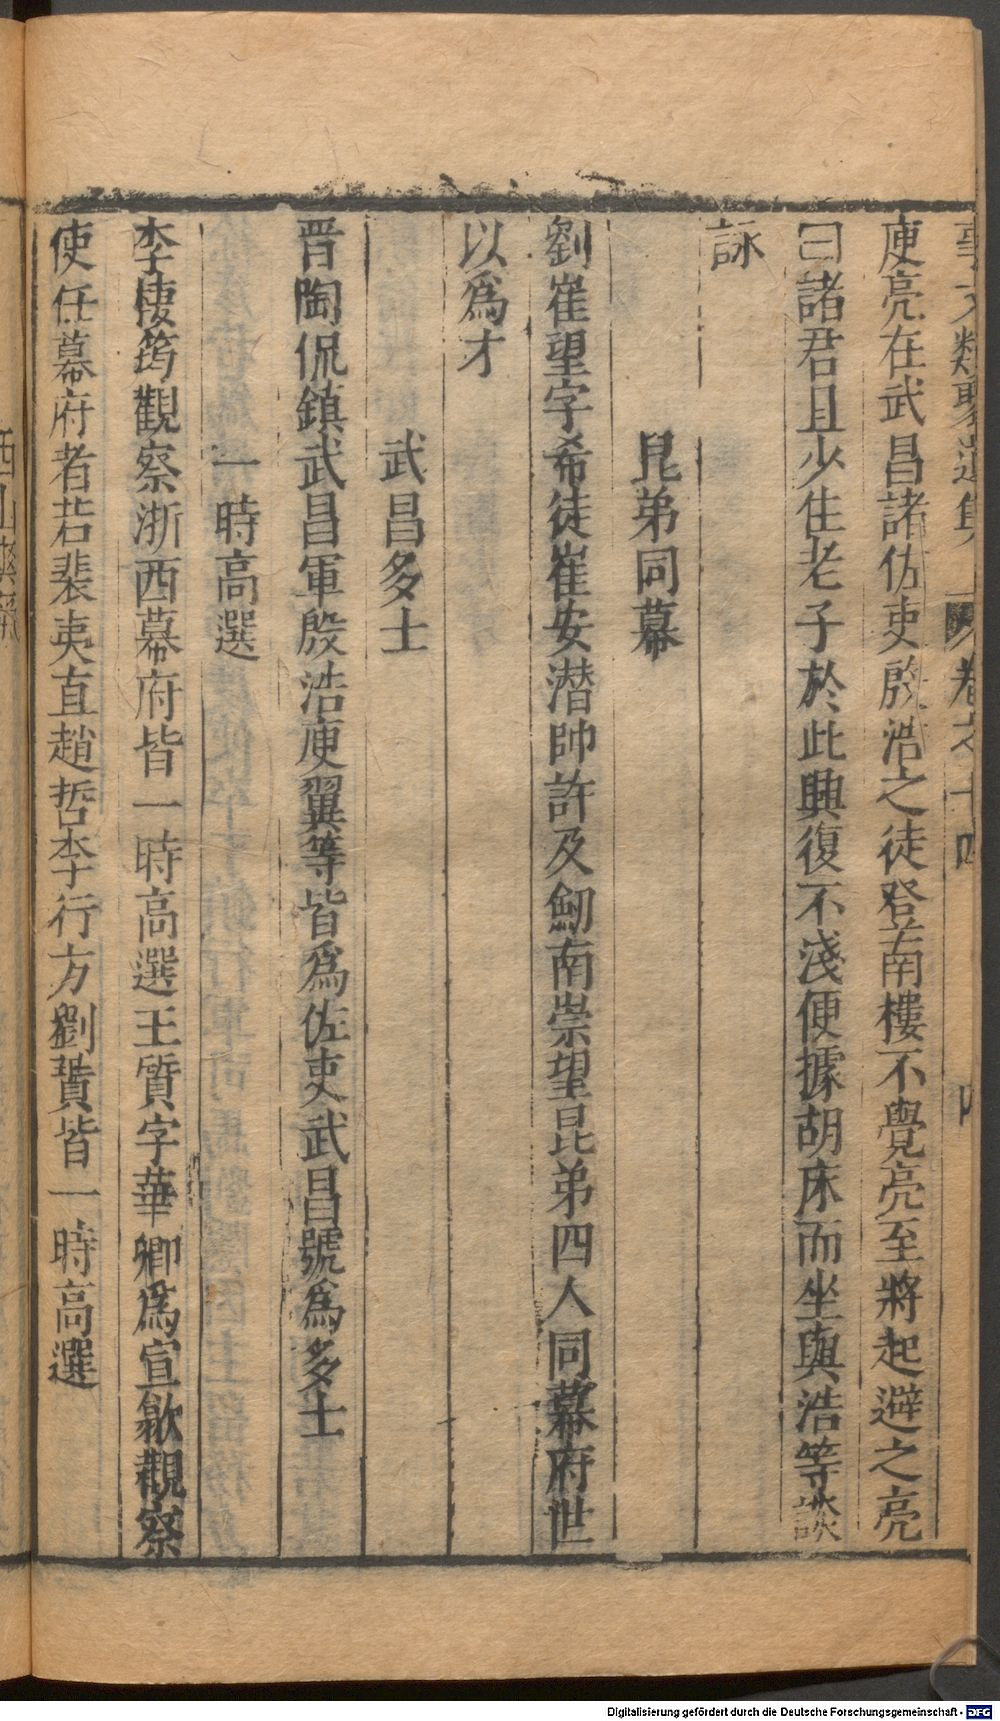 事文類聚遺集 卷之十四 四
庾亮在武昌諸佐吏殷浩之徒登南樓不覺亮至將起避之亮
曰諸君且少住老子於此興復不淺便據胡床而坐與浩等談
詠
昆弟同幕
劉崔望字希徒崔安潜帥許及劒南崇望昆弟四人同幕府世
以爲才
武昌多士
晋陶侃鎮武昌軍殷浩庾翼等皆爲佐吏武昌號爲多士
一時高選
李棲筠觀察浙西幕府皆一時高選王質字華卿爲宣歙觀察
使任幕府者若裴夷直趙晢李行方劉蕡皆一時高選
Digitalisierung gefördert durch die Deutsche Forschungsgemeinschaft - DFG